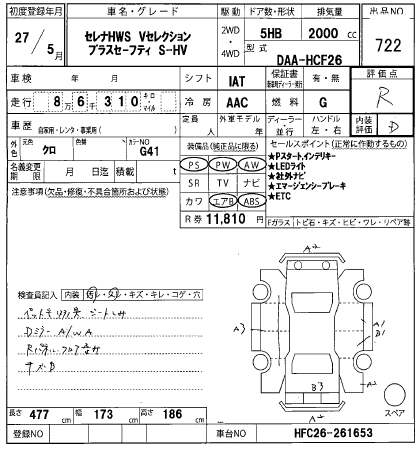 初度登録年月 車名・グレード 駆動 ドア数・形状 排気量 出品NO
27/5月 セレナHWS Vセレクション プラスセーフティ S-HV 2WD・4WD 5HB 2000 cc 722
型式 DAA-HCF26
車検 年 月 シフト IAT 保証書 有・無 評価点
走行 8万6千310 キロ・マイル 冷房 AAC 燃料 G R
車歴 自家用・レンタ・事業用( ) 定員 外車モデル 年 ディーラー・並行 ハンドル 左・右 内装評価 D
外色 元色 クロ 色替 カラーNO G41 装備品(純正品に限る) セールスポイント(正常に作動するもの)
名義変更期限 月 日迄 積載 t PS PW AW ★Pスタート,インテリキー
★LEDライト
注意事項(欠品・修復・不具合箇所および状態) SR TV ナビ ★社外ナビ
★エマージェンシーブレーキ
カワ エアB ABS ★ETC
R券 11,810 円 Fガラス トビ石・キズ・ヒビ・ワレ・リペア跡
A2
検査員記入 内装 汚レ・欠レ・キズ・キレ・コゲ・穴
シートしみ
Dミラー A/W A
A3 A1 B1
B3 A2
A2 スペア
長さ 477 cm 幅 173 cm 高さ 186 cm
登録NO 車台NO HFC26-261653